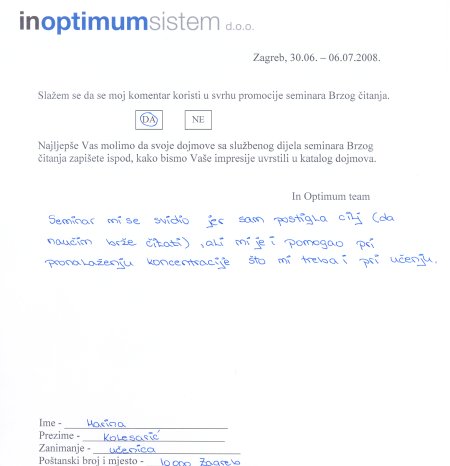 inoptimumsistem d.o.o.
Zagreb, 30.06. – 06.07.2008.
Slažem se da se moj komentar koristi u svrhu promocije seminara Brzog čitanja.
DA NE
Najljepše Vas molimo da svoje dojmove sa službenog dijela seminara Brzog
čitanja zapišete ispod, kako bismo Vaše impresije uvrstili u katalog dojmova.
In Optimum team
Seminar mi se svidio jer sam postigla cilj (da
naučim brže čitati), ali mi je i pomogao pri
pronalaženju koncentracije što mi treba i pri učenju.
Ime - Marina
Prezime - Kolesarić
Zanimanje - učenica
Poštanski broj i mjesto - 10000 Zagreb